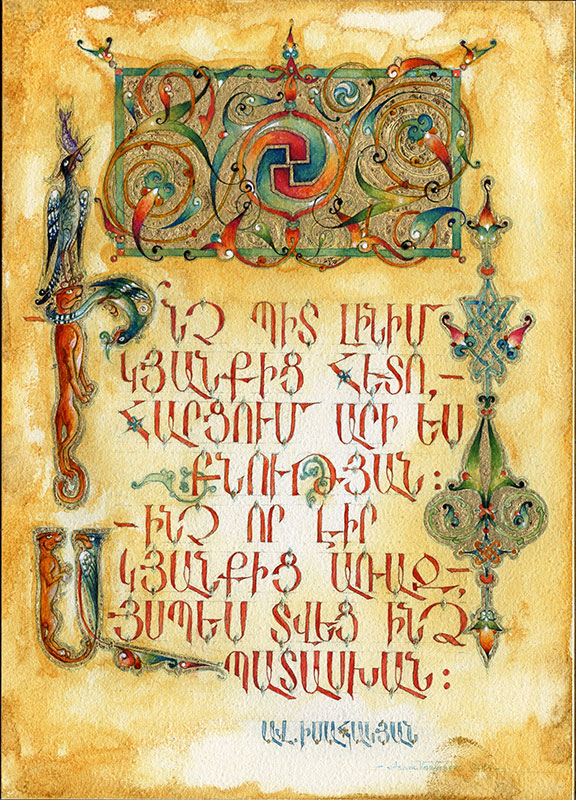 Ի՞ՆՉ ՊԻՏ ԼԻՆԻՄ
ԿՅԱՆՔԻՑ ՀԵՏՈ,—
ՀԱՐՑՈՒՄ ԱՐԻ ԵՍ
ԲՆՈՒԹՅԱՆ։
—ԻՆՉ ՈՐ ԷԻՐ
ԿՅԱՆՔԻՑ ԱՌԱՋ,—
ԱՅՍՊԵՍ ՏՎԵՑ ԻՆՁ
ՊԱՏԱՍԽԱՆ։
ԱՎ.ԻՍԱՀԱԿՅԱՆ